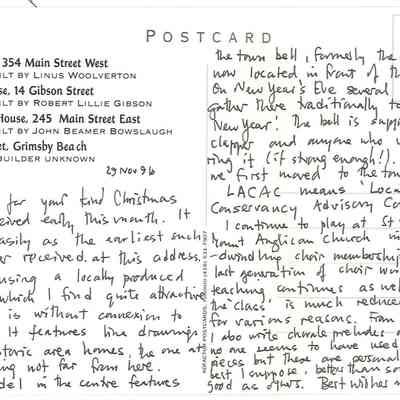 POSTCARD
354 Main Street West
ILT BY LINUS WOOLVERTON
se, 14 Gibson Street
ILT BY ROBERT LILLIE GIBSON
House, 245 Main Street East
LT BY JOHN BEAMER BOWSLAUGH
et, Grimsby Beach
BUILDER UNKNOWN
29 Nov 96
for your kind Christmas
ceived early this month. It
easily as the earliest such
er received at this address.
using a locally produced
which I find quite attractive
is without connexion to
It features line drawings
storic area homes, the one at
ing not far from here.
del in the centre features
the town bell, formerly the
now located in front of th
On New Year's Eve several
gather there traditionally to
New Year! The bell is supp
clapper and anyone who w
ring it (if strong enough!).
we first moved to the town
LACAC means 'Local
Conservancy Advisory Co
I continue to play at St
Mount Anglican Church in
-dwindling choir membership
last generation of choir wor
teaching continues as well
the 'class' is much reduced
for various reasons. From
I also write chorale preludes
no one seems to have used
pieces but these are personal
best I suppose, better than so
good as ours. Best wishes